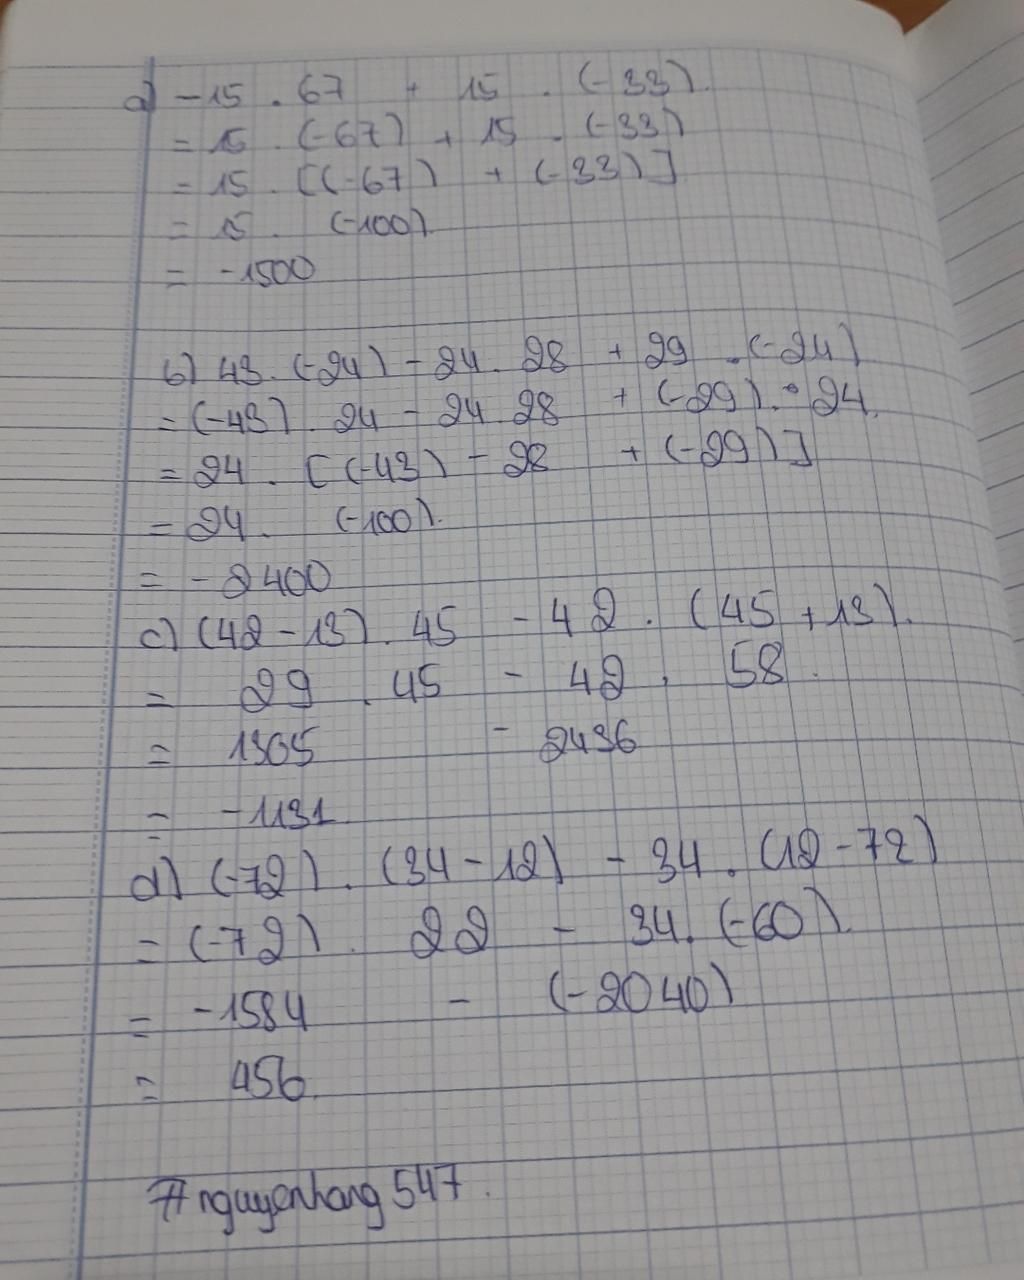 a) -15 . 67 + 15 . (-33)
= 15 . (-67) + 15 . (-33)
= 15 . [(-67) + (-33)]
= 15 . (-100)
= -1500
b) 43 . (-24) - 24 . 28 + 29 . (-24)
= (-43) . 24 - 24 28 + (-29) . 24
= 24 . [(-43) - 28 + (-29)]
= 24 . (-100).
= -2400
c) (42 - 13) . 45 - 42 . (45 + 13).
= 29 . 45 - 42 . 58
= 1305 - 2436
= -1131
d) (-72) . (34 - 12) - 34 . (12 - 72)
= (-72) . 22 - 34 . (-60)
= -1584 - (-2040)
= 456
#nguyenhang547.